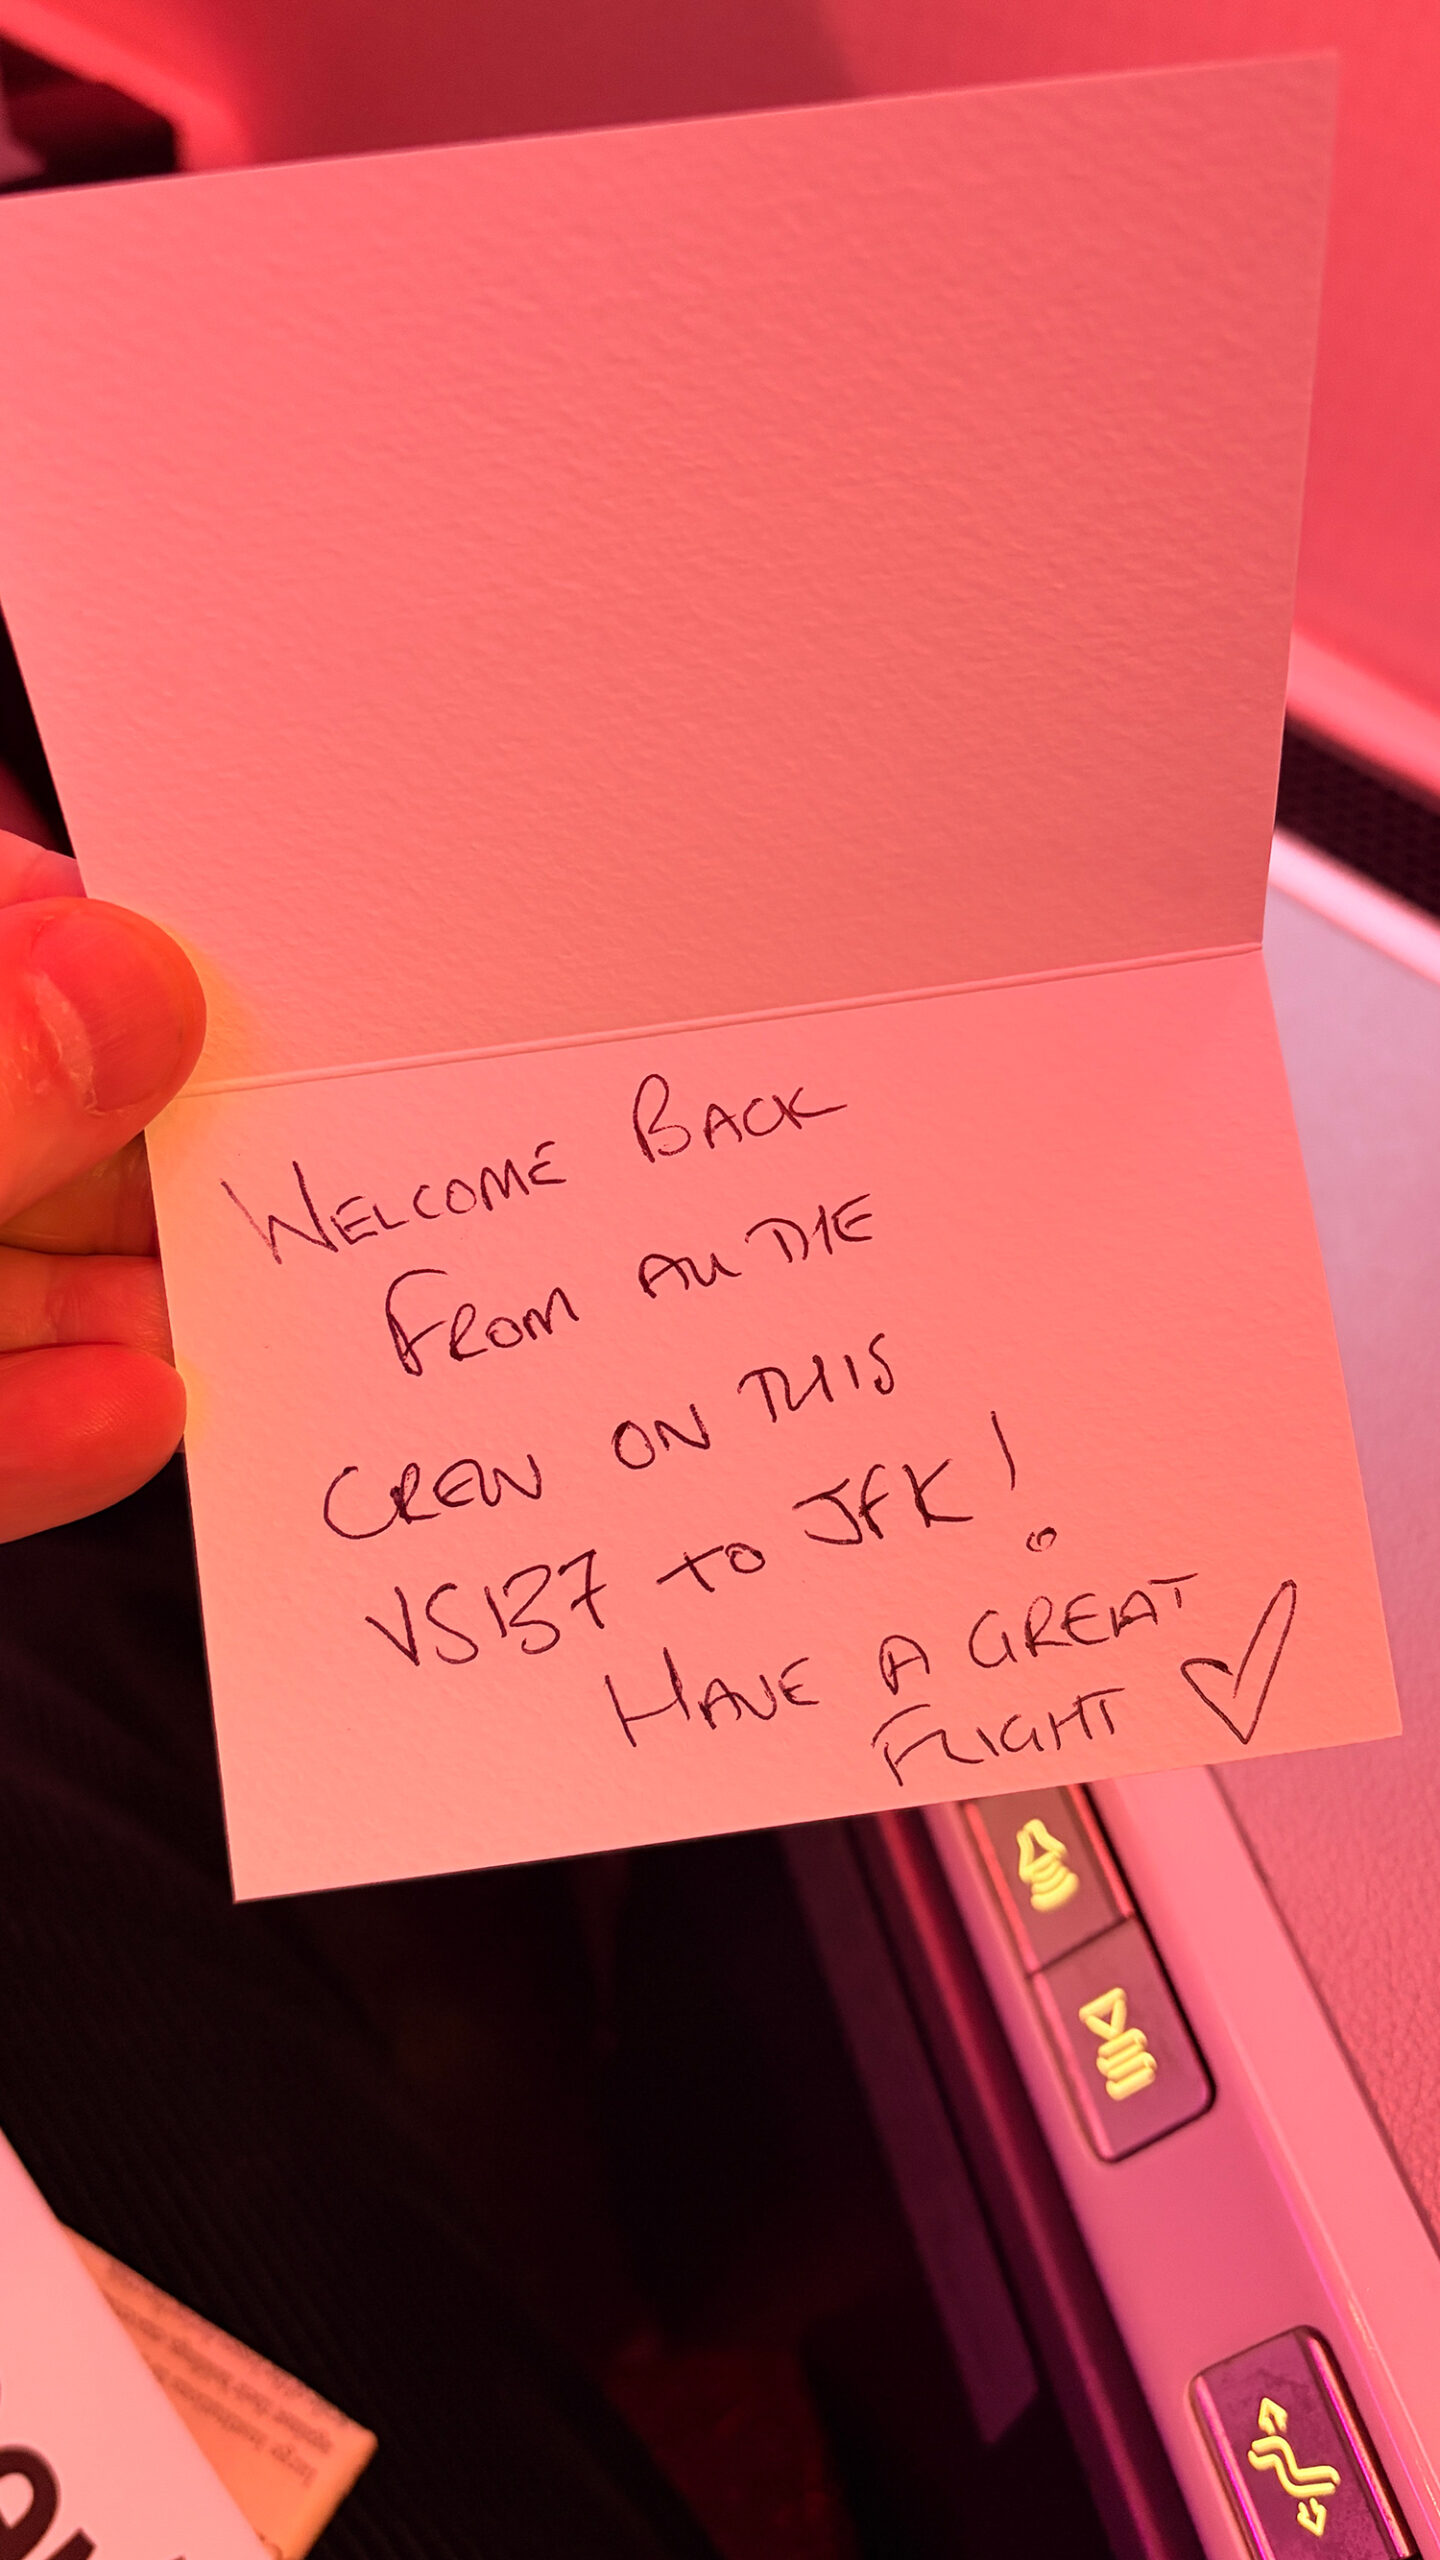 WELCOME BACK
FROM ALL THE
CREW ON THIS
VS137 to JFK!
HAVE A GREAT
FLIGHT